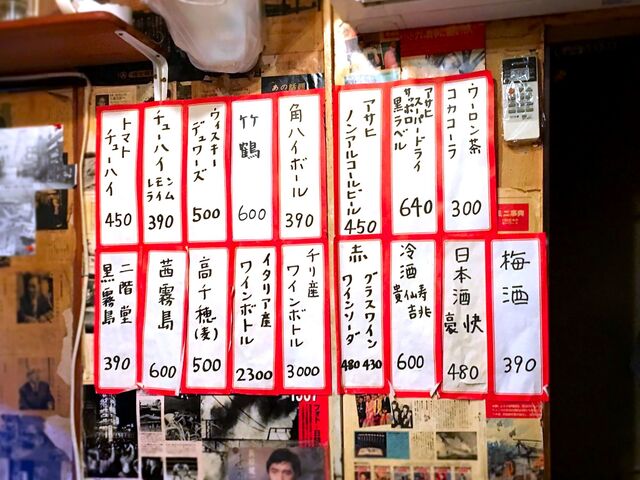 ウーロン茶
コカコーラ
300
アサヒ
スーパードライ
サッポロ
黒ラベル
640
アサヒ
ノンアルコールビール
450
角ハイボール
390
竹鶴
600
ウィスキー
デュワーズ
500
チューハイ
レモン
ライム
390
トマト
チューハイ
450
梅酒
390
日本酒
豪快
480
冷酒
貴仙寿
吉兆
600
赤
グラスワイン
430
ワインソーダ
480
チリ産
ワインボトル
3000
イタリア産
ワインボトル
2300
高千穂(麦)
500
茜霧島
600
二階堂
黒霧島
390